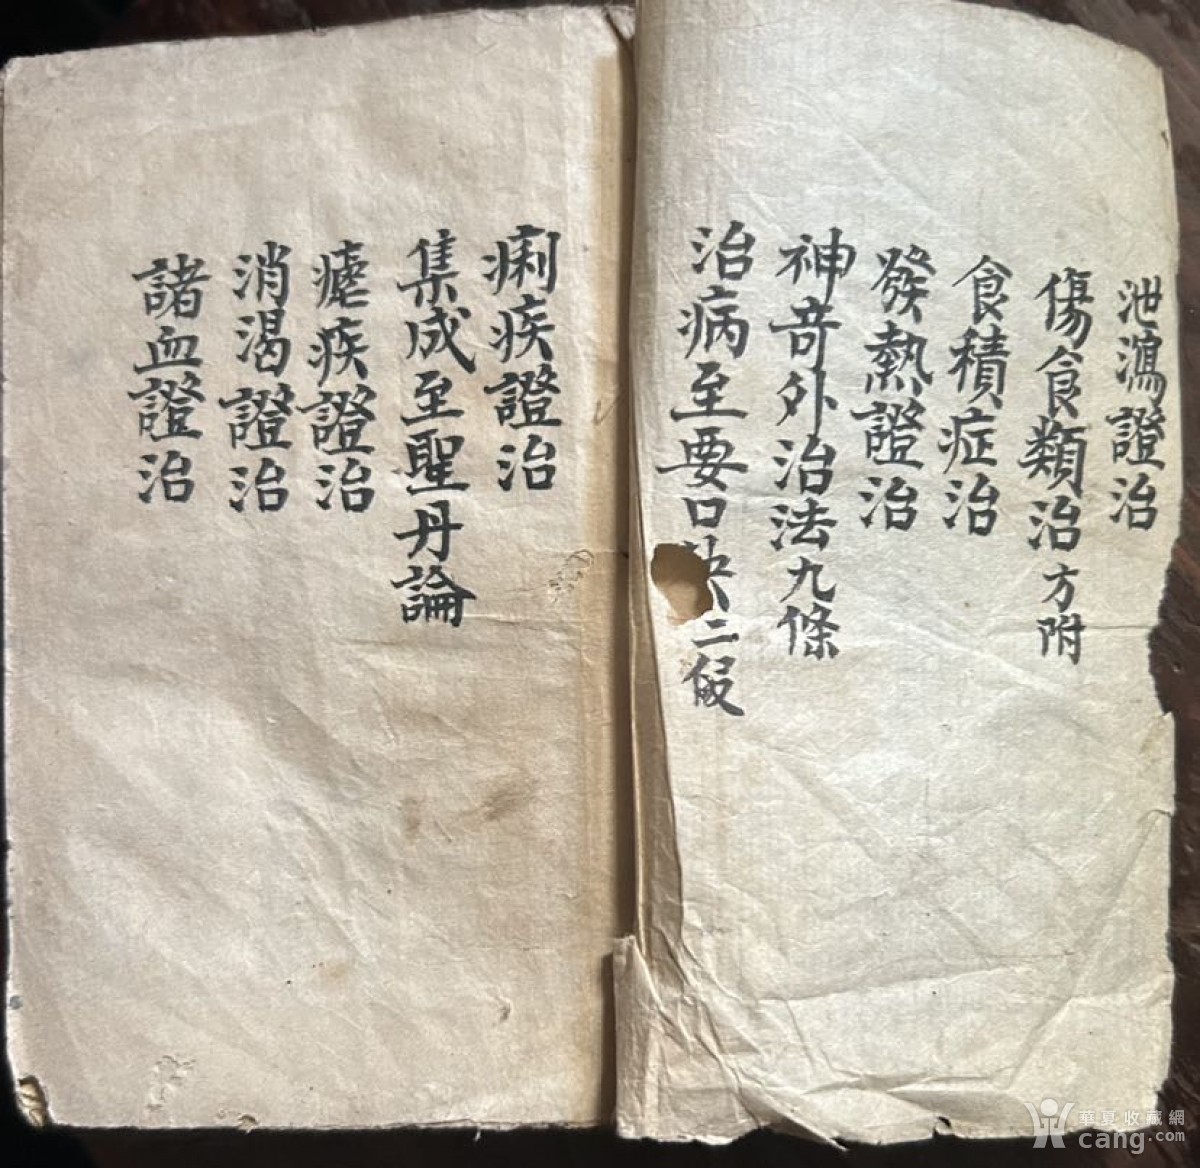 泄瀉證治
傷食類治方附
食積症治
發熱證治
神奇外治法九條
治病至要口訣二段
痢疾證治
集成至聖丹論
瘧疾證治
消渴證治
諸血證治
華夏收藏網
cang.com